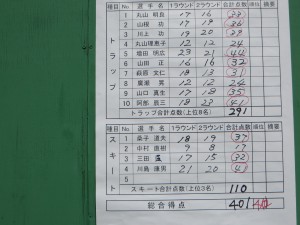 種目 選手名 1ラウンド 2ラウンド 合計点数 順位 摘要
トラップ
1 丸山 明良 17 16
2 山根 功 17 19 36
3 川上 功 19 20 39
4 丸山理恵子 12 12 24
5 増田 明広 23 21 44
6 山田 正 16 16 32
7 萩原 文仁 18 13 31
8 12 12 24
9 山口 真生 17 18 35
10 阿部 辰三 18 23 41
トラップ合計点数(上位8名) 291
種目 選手名 1ラウンド 2ラウンド 合計点数 順位 摘要
スキート
1 桑子 道夫 18 19 37
2 中村 直樹 9 8 17
3 三田 17 15 32
4 川島 康男 21 20 41
5
スキート合計点数(上位3名) 110
総合得点 401